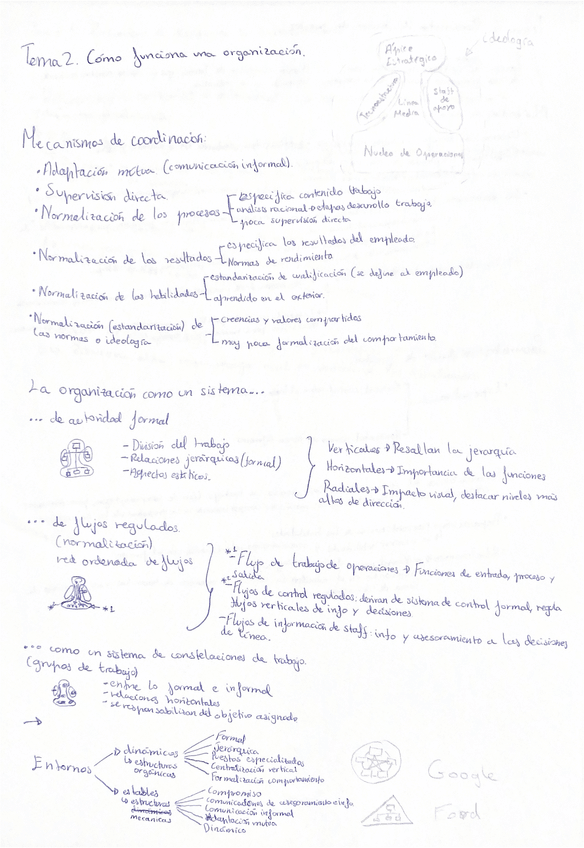 Tema 2. Cómo funciona una organización.
Ideología
Ápice Estratégico
Tecnoestructura
Línea Media
Staff de apoyo
Nucleo de Operaciones
Mecanismos de coordinación:
• Adaptación mutua (comunicación informal).
• Supervisión directa
• Normalización de los procesos
especifica contenido trabajo
análisis racional → etapas desarrollo trabajo
poca supervisión directa
• Normalización de los resultados
especifica los resultados del empleado
Normas de rendimiento
• Normalización de las habilidades
estandarización de cualificación (se define al empleado)
aprendido en el exterior.
• Normalización (estandarización) de
las normas o ideología
creencias y valores compartidos
muy poca formalización del comportamiento
La organización como un sistema...
... de autoridad formal
- División del trabajo
- Relaciones jerárquicas (formal)
- Aspectos estáticos.
Verticales → Resaltan la jerarquía
Horizontales → Importancia de las funciones
Radiales → Impacto visual, destacar niveles más
altos de dirección.
... de flujos regulados.
(normalización)
red ordenada de flujos
*1
*1
- Flujo de trabajo de operaciones → Funciones de entrada, proceso y
salida
*2
- Flujos de control regulados: derivan de sistema de control formal, regula
flujos verticales de info y decisiones
- Flujos de información de staff: info y asesoramiento a las decisiones
de línea.
... como un sistema de constelaciones de trabajo.
(grupos de trabajo)
- entre lo formal e informal
- relaciones horizontales
- se responsabilizan del objetivo asignado
→
Entornos
dinámicos
↳ estructuras
orgánicas
Formal
Jerárquica
Puestos especializados
Centralización vertical
Formalización comportamiento
estables
↳ estructuras
dinámicas
mecánicas
Compromiso
comunicaciones de asesoramiento e info
Comunicación informal
Adaptación mutua
Dinámico
Google
Ford